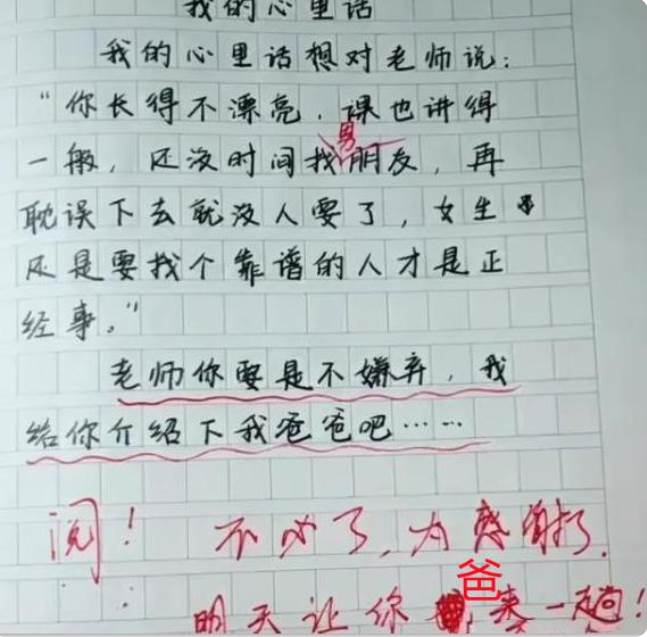 我的心里话
我的心里话想对老师说：
“你长得不漂亮，课也讲得
一般，还没时间找男朋友，再
耽误下去就没人要了，女生
还是要找个靠谱的人才是正
经事。”
老师你要是不嫌弃，我
给你介绍下我爸爸吧……
阅！ 不必了，太感谢了，
明天让你爸来一趟！